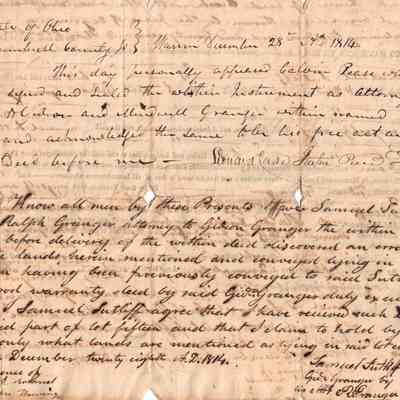 te of Ohio
Trumbull County ss } Warren December 28th AD. 1814.
This day personally appeared Calvin Pease who
signed and sealed the within Instrument as Attorney
and Mindwell Granger within named
and acknowledged the same to be his free act an
Deed before me — Leonard Case
Know all men by these Presents Samuel Su
Ralph Granger attorney to Gideon Granger the within
before delivery of the within deed discovered an erro
lands herein mentioned and conveyed lying in
having been previously conveyed to said Sut
good warranty deed by said Gidn Granger duly
Samuel Sutliff agree that I have received such
part of lot fifteen and that I claim to hold by
only what lands are mentioned as lying in said
December twenty eighth A.D. 1814.
Samuel Sutliff
Gidn Granger by
his att R Granger